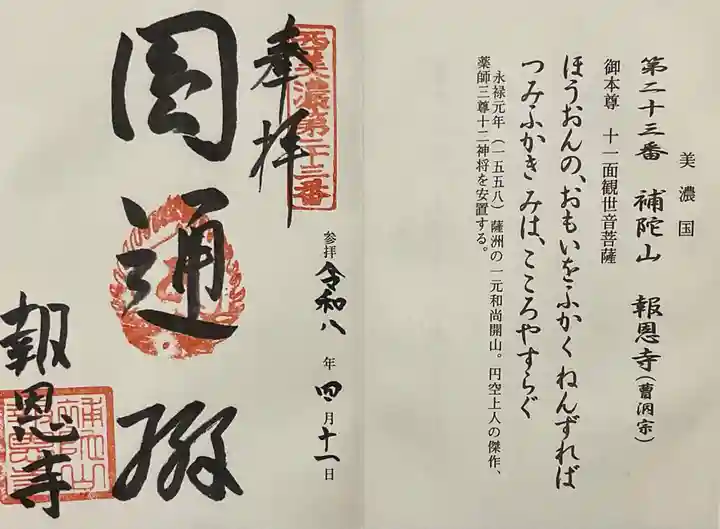 美濃国
第二十三番 補陀山 報恩寺(曹洞宗)
御本尊 十一面観世音菩薩
ほうおんの、おもいをふかくねんずれば
つみふかきみは、こころやすらぐ
永禄元年(一五五八)薩洲の一元和尚開山。円空上人の傑作、
薬師三尊十二神将を安置する。
西美濃第二十三番
奉拝
参拝 令和八年 四月十一日
圓通殿
報恩寺